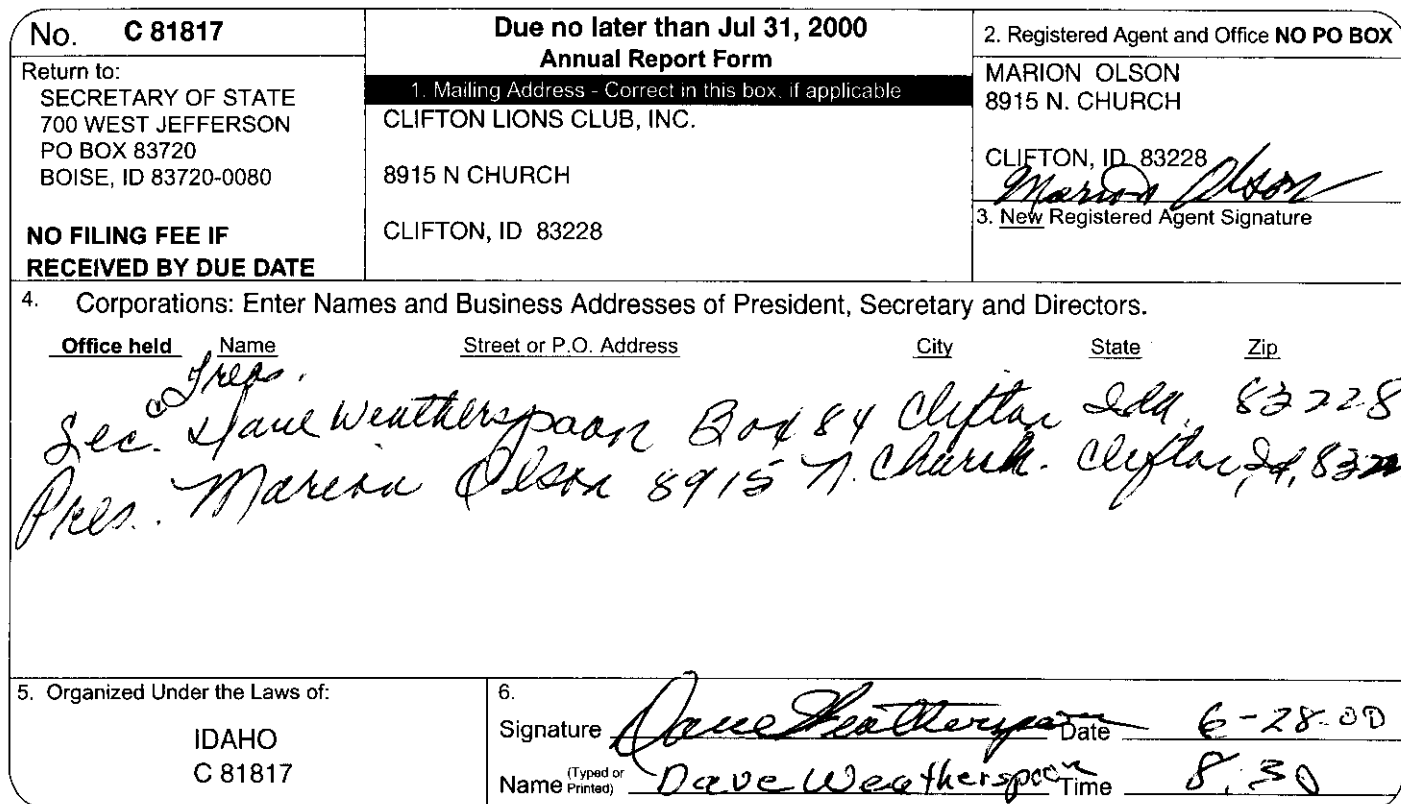 No. C 81817
Return to:
SECRETARY OF STATE
700 WEST JEFFERSON
PO BOX 83720
BOISE, ID 83720-0080
NO FILING FEE IF
RECEIVED BY DUE DATE
Due no later than Jul 31, 2000
Annual Report Form
1. Mailing Address - Correct in this box, if applicable
CLIFTON LIONS CLUB, INC.
8915 N CHURCH
CLIFTON, ID 83228
2. Registered Agent and Office NO PO BOX
MARION OLSON
8915 N. CHURCH
CLIFTON, ID 83228
Marion Olson
3. New Registered Agent Signature
4. Corporations: Enter Names and Business Addresses of President, Secretary and Directors.
Office held Name Street or P.O. Address City State Zip
Treas.
Sec. Dave Weatherspoon Box 84 Clifton Ida. 83228
Pres. Marion Olson 8915 N. Church. Clifton, Id,
5. Organized Under the Laws of:
IDAHO
C 81817
6.
Signature Dave Weatherspoon Date 6-28-00
Name (Typed or Printed) Dave Weatherspoon Time 8:30